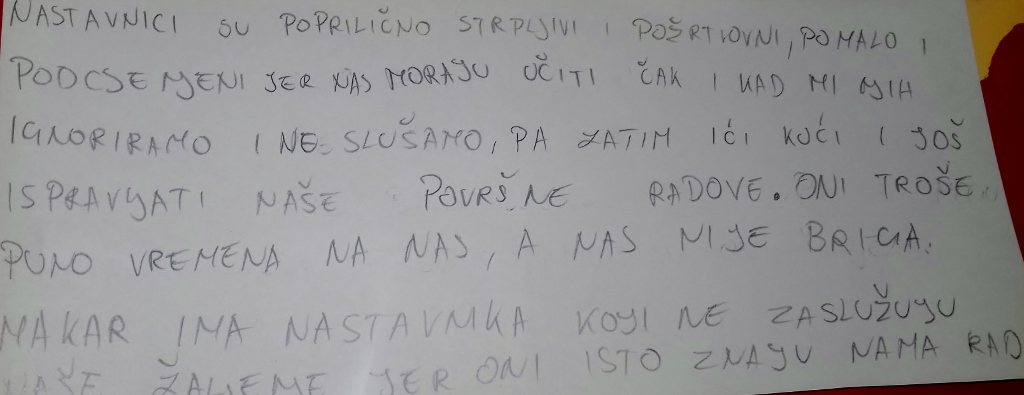 NASTAVNICI SU POPRILIČNO STRPLJIVI I POŽRTVOVNI, POMALO I
PODCJENJENI JER NAS MORAJU UČITI ČAK I KAD MI NJIH
IGNORIRAMO I NE SLUŠAMO, PA ZATIM IĆI KUĆI I JOŠ
ISPRAVLJATI NAŠE POVRŠNE RADOVE. ONI TROŠE
PUNO VREMENA NA NAS, A NAS NIJE BRIGA.
MAKAR IMA NASTAVNIKA KOJI NE ZASLUŽUJU
NAŠE ŽALJENJE JER ONI ISTO ZNAJU NAMA RAD